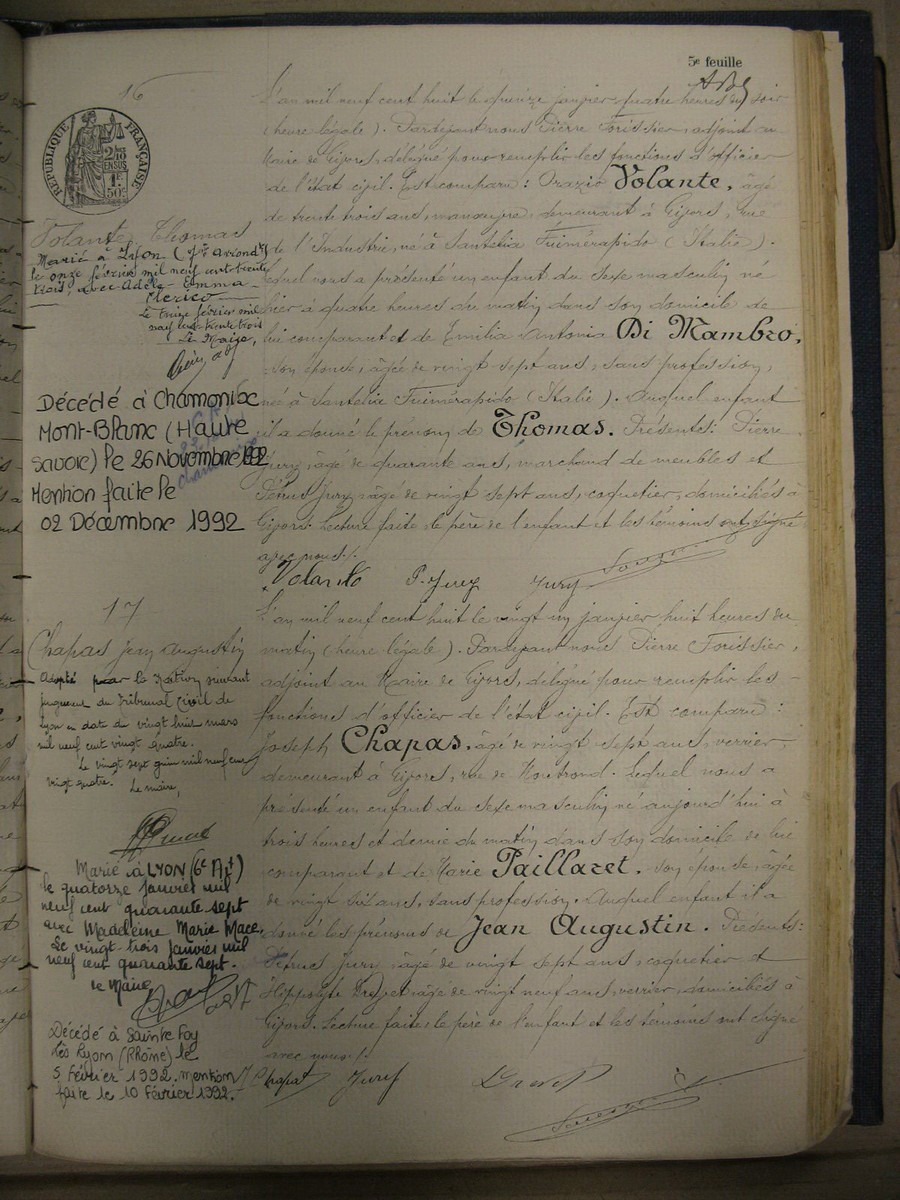 5e feuille
16
REPUBLIQUE FRANÇAISE
2/10 EN SUS
1F 50c
Volante Thomas
Marié à Lyon
le onze février mil neuf cent trente
trois, avec Adèle Emma
Clerico
Le treize février mil
neuf cent trente trois
Le Maire,
Décédé à Chamonix
Mont-Blanc (Haute
Savoie) le 26 Novembre 1992
Mention faite le
02 Décembre 1992
L'an mil neuf cent huit le quinze janvier quatre heures du soir
(heure légale). Pardevant nous Pierre Forissier, adjoint au
Maire de Givors, délégué pour remplir les fonctions d'officier
de l'état civil. Est comparu : Orazio Volante, âgé
de trente trois ans, manœuvre, demeurant à Givors, rue
de l'Industrie, né à Santelia Fuimérapido (Italie).
Lequel nous a présenté un enfant du sexe masculin né
hier à quatre heures du matin dans son domicile de
lui comparant et de Emilia Antonia Di Mambro,
son épouse, âgée de vingt sept ans, sans profession,
née à Santelia Fuimérapido (Italie). Auquel enfant
il a donné le prénom de Thomas. Présents : Pierre
Jury, âgé de quarante ans, marchand de meubles et
Pétrus Jury, âgé de vingt sept ans, coquetier, domiciliés à
Givors. Lecture faite, le père de l'enfant et les témoins ont signé
avec nous.
Volante P. Jury Jury
17
Chapas Jean Augustin
Adopté par la Nation suivant
jugement du Tribunal Civil de
Lyon en date du vingt huit mars
mil neuf cent vingt quatre.
Le vingt sept juin mil neuf cent
vingt quatre. Le maire,
Marié à LYON (6e Arrt)
le quatorze janvier mil
neuf cent quarante sept
avec Madeleine Marie Mace,
Le vingt-trois janvier mil
neuf cent quarante sept.
le Maire
Décédé à Sainte Foy
lès Lyon (Rhône) le
5 Février 1992. mention
faite le 10 Février 1992.
L'an mil neuf cent huit le vingt un janvier huit heures du
matin (heure légale). Pardevant nous Pierre Forissier,
adjoint au Maire de Givors, délégué pour remplir les
fonctions d'officier de l'état civil. Est comparu :
Joseph Chapas, âgé de vingt sept ans, verrier,
demeurant à Givors, rue de Montrond. Lequel nous a
présenté un enfant du sexe masculin né aujourd'hui à
trois heures et demie du matin dans son domicile de lui
comparant et de Marie Paillaret, son épouse, âgée
de vingt six ans, sans profession. Auquel enfant il a
donné les prénoms de Jean Augustin. Présents :
Pétrus Jury, âgé de vingt sept ans, coquetier et
Hippolyte Drevet, âgé de vingt neuf ans, verrier, domiciliés à
Givors. Lecture faite, le père de l'enfant et les témoins ont signé
avec nous.
Chapas Jury Drevet